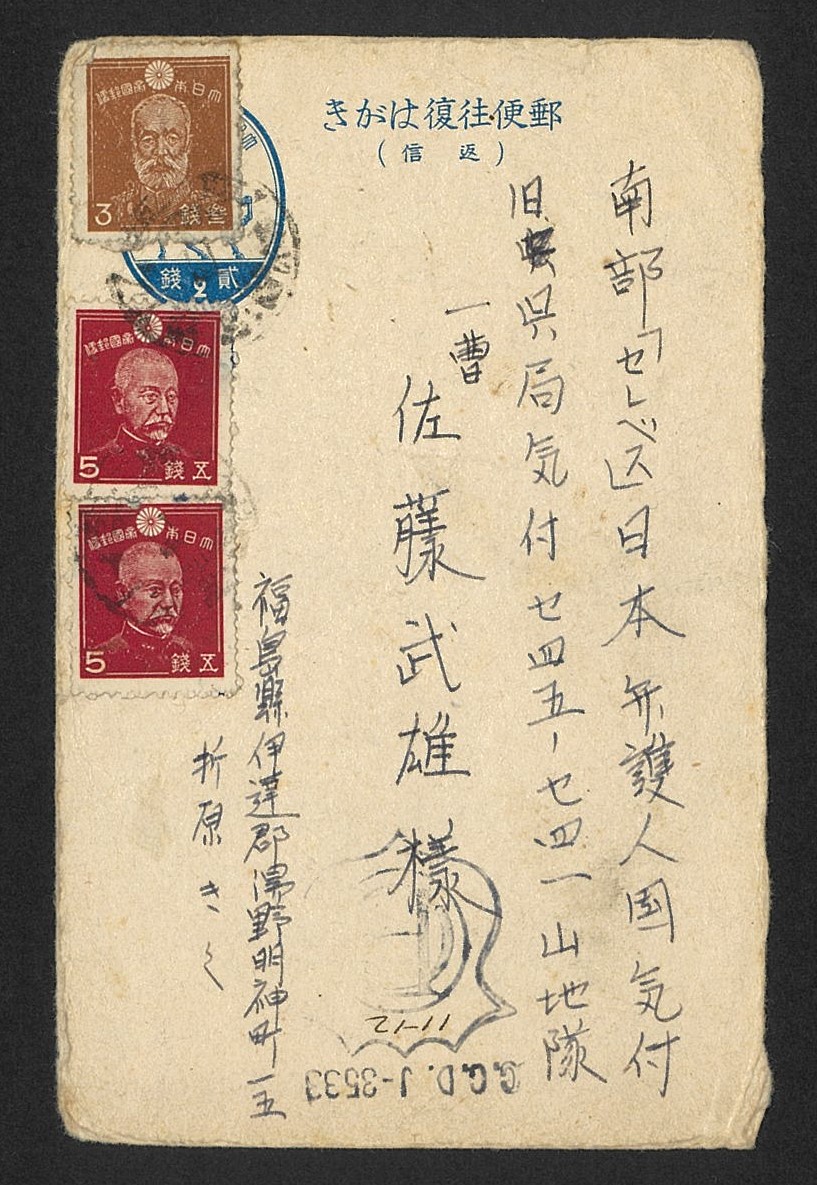 郵便往復はがき
(返信)
南部「セレベス」日本弁護人国気付
旧呉局気付セ四五ーセ四一山地隊
一曹
佐藤武雄様
福島縣伊達郡湯野明神町一五
折原きく
大日本帝國郵便
3 參錢
貳錢
2
大日本帝國郵便
5 五錢
大日本帝國郵便
5 五錢
C.C.D. J-3533